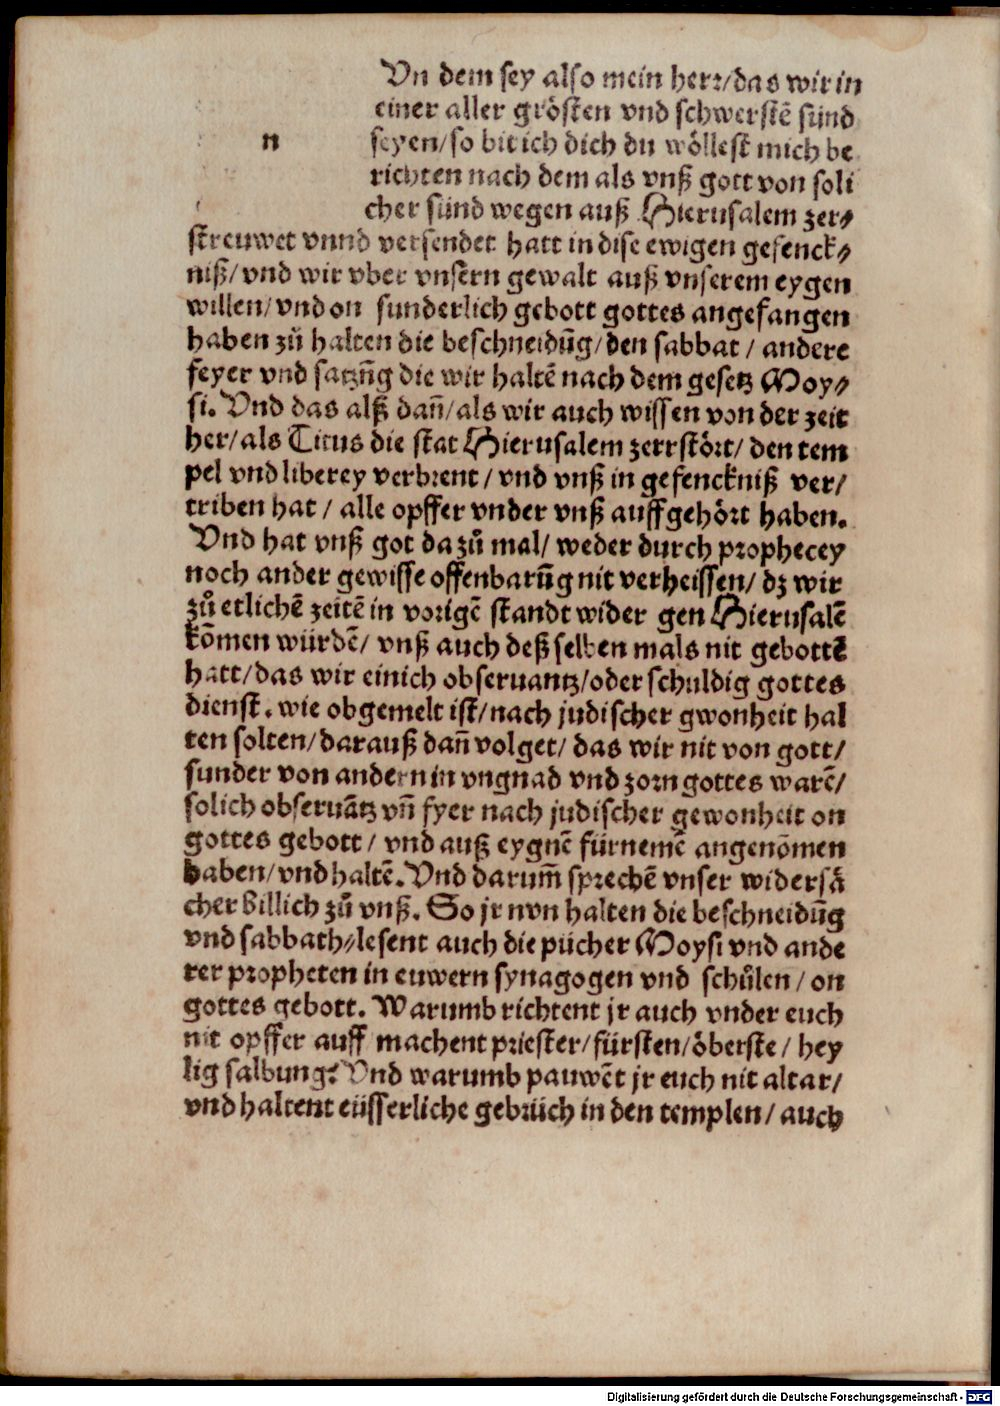 Vn dem sey also mein herr/das wir in
einer aller grösten vnd schwerstē sünd
n seyen/so bit ich dich du wöllest mich be
richten nach dem als vnß gott von soli
cher sünd wegen auß Hierusalem zer⸗
streuwet vnnd versendet hatt in dise ewigen gefenck⸗
niß/vnd wir vber vnsern gewalt auß vnserem eygen
willen/vnd on sunderlich gebott gottes angefangen
haben zů halten die beschneidūg/den sabbat / andere
feyer vnd satzūg die wir haltē nach dem gesetz Moy⸗
si. Vnd das alß dañ/als wir auch wissen von der zeit
her/als Titus die stat Hierusalem zerrstört/ den tem
pel vnd liberey verbrent / vnd vnß in gefenckniß ver/
triben hat / alle opffer vnder vnß auffgehört haben.
Vnd hat vnß got da zů mal/ weder durch prophecey
noch ander gewisse offenbarūg nit verheissen/ dz wir
zů etlichē zeitē in vorigē standt wider gen Hierusalē
kōmen würdē/ vnß auch deß selben mals nit gebottē
hatt/das wir einich obseruantz/oder schuldig gottes
dienst. wie obgemelt ist/nach judischer gwonheit hal
ten solten/darauß dañ volget/ das wir nit von gott/
sunder von andern in vngnad vnd zorn gottes warē/
solich obseruātz vñ fyer nach judischer gewonheit on
gottes gebott / vnd auß eygnē fürnemē angenōmen
haben/vnd haltē. Vnd darum̄ sprechē vnser widersä
cher billich zů vnß. So jr nvn halten die beschneidūg
vnd sabbath⸗lesent auch die pücher Moysi vnd ande
rer propheten in euwern synagogen vnd schůlen / on
gottes gebott. Warumb richtent jr auch vnder euch
nit opffer auff machent priester/fürsten/öberste/ hey
lig salbung? Vnd warumb pauwēt jr euch nit altar/
vnd haltent eüsserliche gebrüch in den templen/ auch
Digitalisierung gefördert durch die Deutsche Forschungsgemeinschaft - DFG